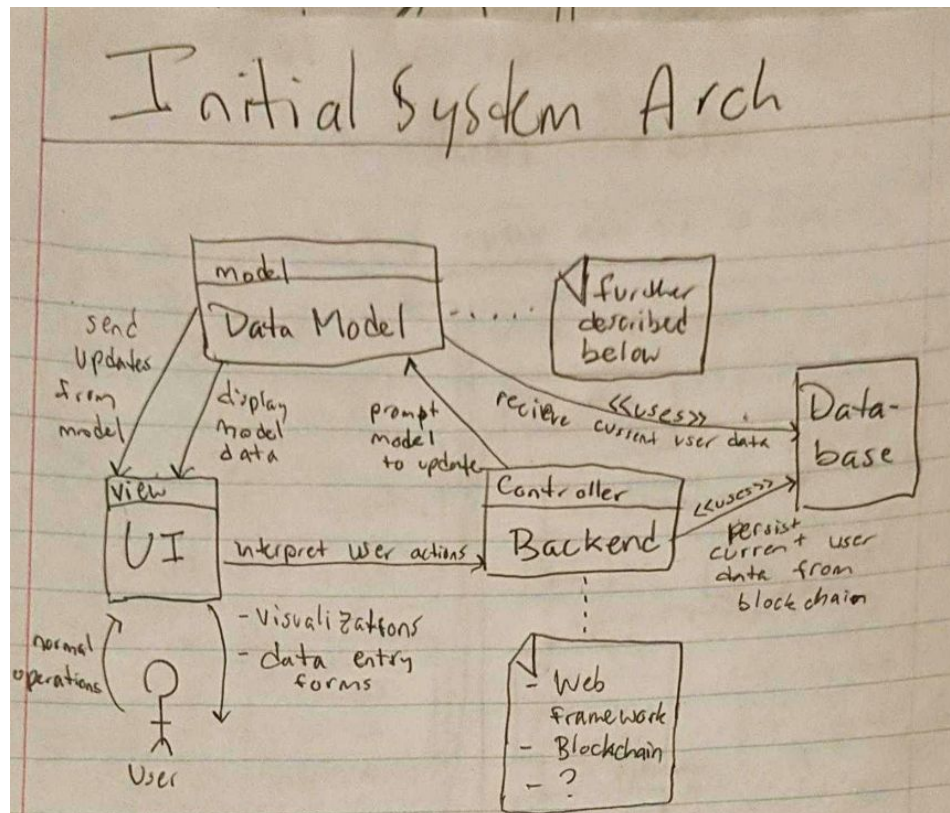 Initial System Arch
model
Data Model
further
described
below
send
updates
from
model
display
model
data
prompt
model
to update
recieve
<<uses>>
current user data
Data-
base
view
UI
interpret user actions
Controller
Backend
<<uses>>
persist
current user
data from
blockchain
normal
operations
- visualizations
- data entry
forms
User
- Web
framework
- Blockchain
- ?